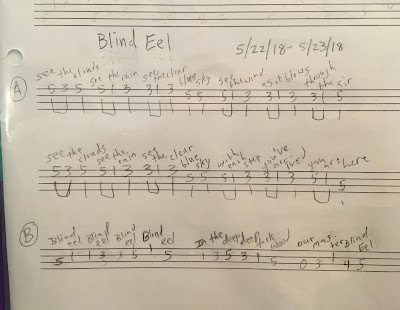 Blind Eel 5/22/18- 5/23/18
see the clouds see the rain see the clear blue sky see the wind as it blows through the air
A 5 3 5 5 1 3 3 1 3 5 5 5 1 3 3 1 3 3 1 5
see the clouds see the rain see the clear blue sky with each step you've arrived you are here
5 3 5 5 1 3 3 1 3 5 5 5 1 3 3 1 3 5 1 5
B Blind eel Blind eel Blind eel Blind eel In the deep deep dark wood our master Blind Eel
5 1 1 3 1 5 1 5 1 3 5 3 1 5 0 3 1 4 5